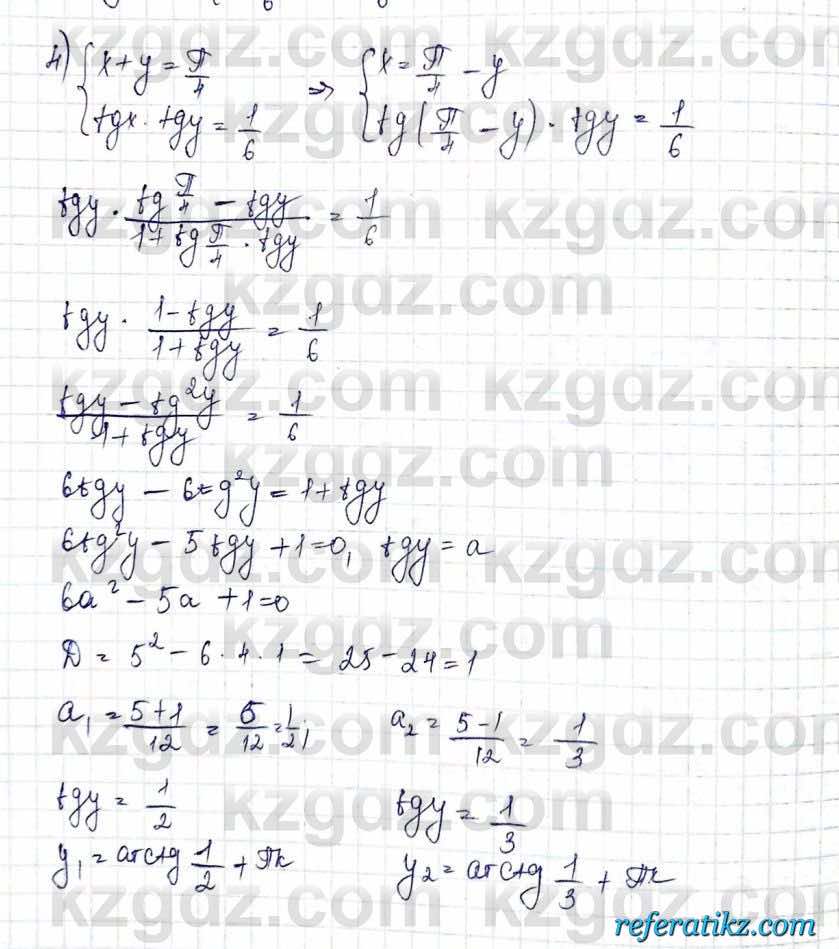 4) { x + y = π/4 ⇒ { x = π/4 - y
tgx · tgy = 1/6 tg(π/4 - y) · tgy = 1/6
tgy · (tg π/4 - tgy)/(1 + tg π/4 · tgy) = 1/6
tgy · (1 - tgy)/(1 + tgy) = 1/6
(tgy - tg²y)/(1 + tgy) = 1/6
6tgy - 6tg²y = 1 + tgy
6tg²y - 5tgy + 1 = 0, tgy = a
6a² - 5a + 1 = 0
D = 5² - 6 · 4 · 1 = 25 - 24 = 1
a₁ = (5+1)/12 = 6/12 = 1/2; a₂ = (5-1)/12 = 1/3
tgy = 1/2 tgy = 1/3
y₁ = arctg 1/2 + πk y₂ = arctg 1/3 + πk
kzgdz.com
referatikz.com